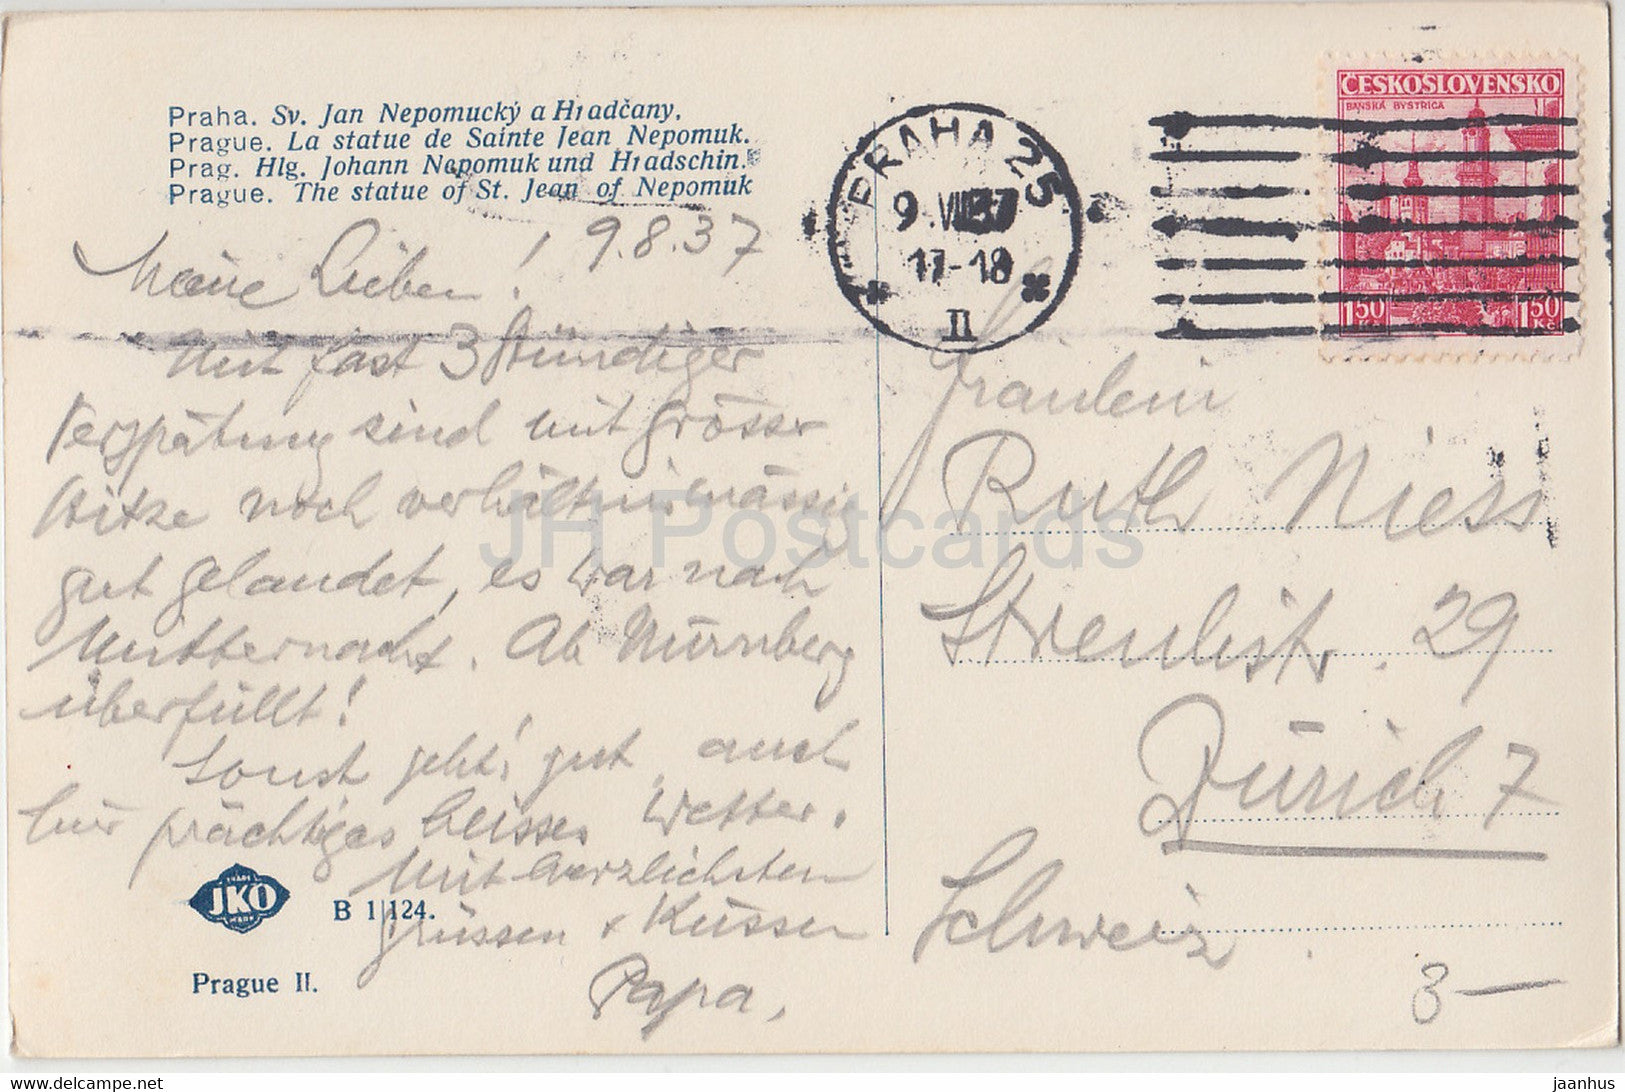 Praha. Sv. Jan Nepomucký a Hradčany.
Prague. La statue de Sainte Jean Nepomuk.
Prag. Hlg. Johann Nepomuk und Hradschin.
Prague. The statue of St. Jean of Nepomuk
Meine Lieben! 9.8.37
Mit fast 3 stündiger
Verspätung sind mit grösser
Hitze noch verhältnismässig
gut gelandet, es war nach
Mitternacht. Ab Nürnberg
überfüllt!
Sonst geht's gut, auch
hier prächtiges heisses Wetter.
Mit herzlichsten
Grüssen + Küssen
Papa,
JKO
TRADE
MARK
B 1/124.
Prague II.
PRAHA 25
9.VIII.37
17-18
II
ČESKOSLOVENSKO
BANSKÁ BYSTRICA
1.50 Kč
1.50 Kč
Fräulein
Ruth Niess
Streulistr. 29
Zürich 7
Schweiz.
3—
JH Postcards
jaanhus
delcampe.net